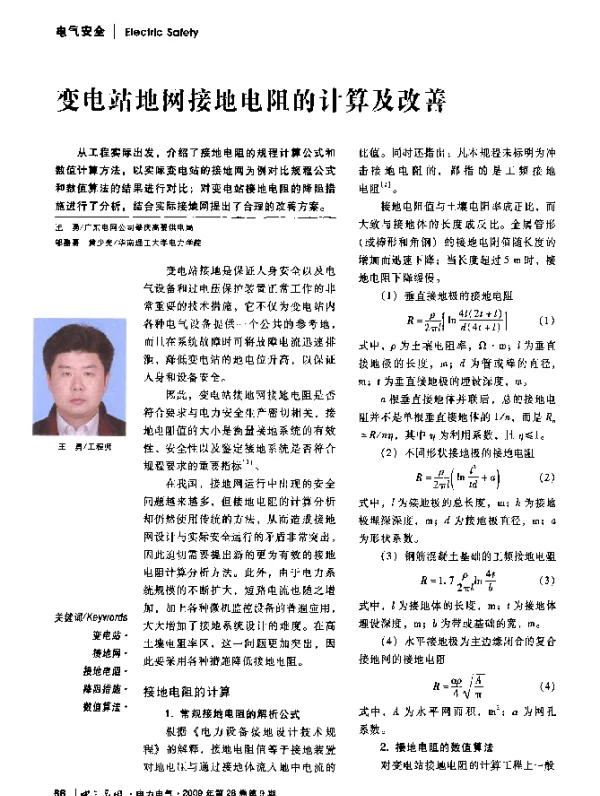 电气安全 | Electric Safety
变电站地网接地电阻的计算及改善
从工程实际出发，介绍了接地电阻的规程计算公式和
数值计算方法，以实际变电站的接地网为例对比规程公式
和数值算法的结果进行对比；对变电站接地电阻的降阻措
施进行了分析，结合实际接地网提出了合理的改善方案。
王 勇/广东电网公司肇庆高要供电局
黄少先/华南理工大学电力学院
变电站接地是保证人身安全以及电
气设备和过电压保护装置正常工作的非
常重要的技术措施，它不仅为变电站内
各种电气设备提供一个公共的参考地，
而且在系统故障时可将故障电流迅速排
泄，降低变电站的地电位升高，以保证
人身和设备安全。
因此，变电站接地网接地电阻是否
符合要求与电力安全生产密切相关。接
地电阻值的大小是衡量接地系统的有效
性、安全性以及鉴定接地系统是否符合
规程要求的重要指标[1]。
在我国，接地网运行中出现的安全
问题越来越多，但接地电阻的计算分析
却仍然使用传统的方法，从而造成接地
网设计与实际安全运行的矛盾非常突出，
因此迫切需要提出新的更为有效的接地
电阻计算分析方法。此外，由于电力系
统规模的不断扩大，短路电流也随之增
加，加上各种微机监控设备的普遍应用，
大大增加了接地系统设计的难度。在高
土壤电阻率区，这一问题更加突出，因
此要采用各种措施降低接地电阻。
接地电阻的计算
1. 常规接地电阻的解析公式
根据《电力设备接地设计技术规
程》的解释，接地电阻值等于接地装置
对地电压与通过接地体流入地中电流的
王 勇/工程师
关键词/Keywords
变电站·
接地网·
接地电阻·
降阻措施·
数值算法·
比值。同时还指出：凡本规程未标明为冲
击接地电阻的，都指的是工频接地
电阻[2]。
接地电阻值与土壤电阻率成正比，而
大致与接地体的长度成反比。金属管形
（或棒形和角钢）的接地电阻值随长度的
增加而迅速下降；当长度超过 5 m 时，接
地电阻下降缓慢。
（1）垂直接地极的接地电阻
R=ρ/2πl[ln 4l(2t+l)/d(4t+l)] (1)
式中，ρ为土壤电阻率，Ω·m；l为垂直
接地极的长度，m；d为管或棒的直径，
m；t为垂直接地极的埋设深度，m。
n根垂直接地体并联后，总的接地电
阻并不是单根垂直接地体的1/n，而是Rn
=R/nη，其中η为利用系数，且η≤1。
（2）不同形状接地极的接地电阻
R=ρ/2πl(ln l²/td+a) (2)
式中，l为接地极的总长度，m；h为接地
极埋深深度，m；d为接地极直径，m；a
为形状系数。
（3）钢筋混凝土基础的工频接地电阻
R=1.7 ρ/2πl ln 4t/b (3)
式中，l为接地体的长度，m；t为接地体
埋设深度，m；b为带或基础的宽，m。
（4）水平接地极为主边缘闭合的复合
接地网的接地电阻
R=αρ/4 √A/π (4)
式中，A为水平网面积，m²；α为网孔
系数。
2. 接地电阻的数值算法
对变电站接地电阻的计算工程上一般
·电力电气·2009年第28卷第9期